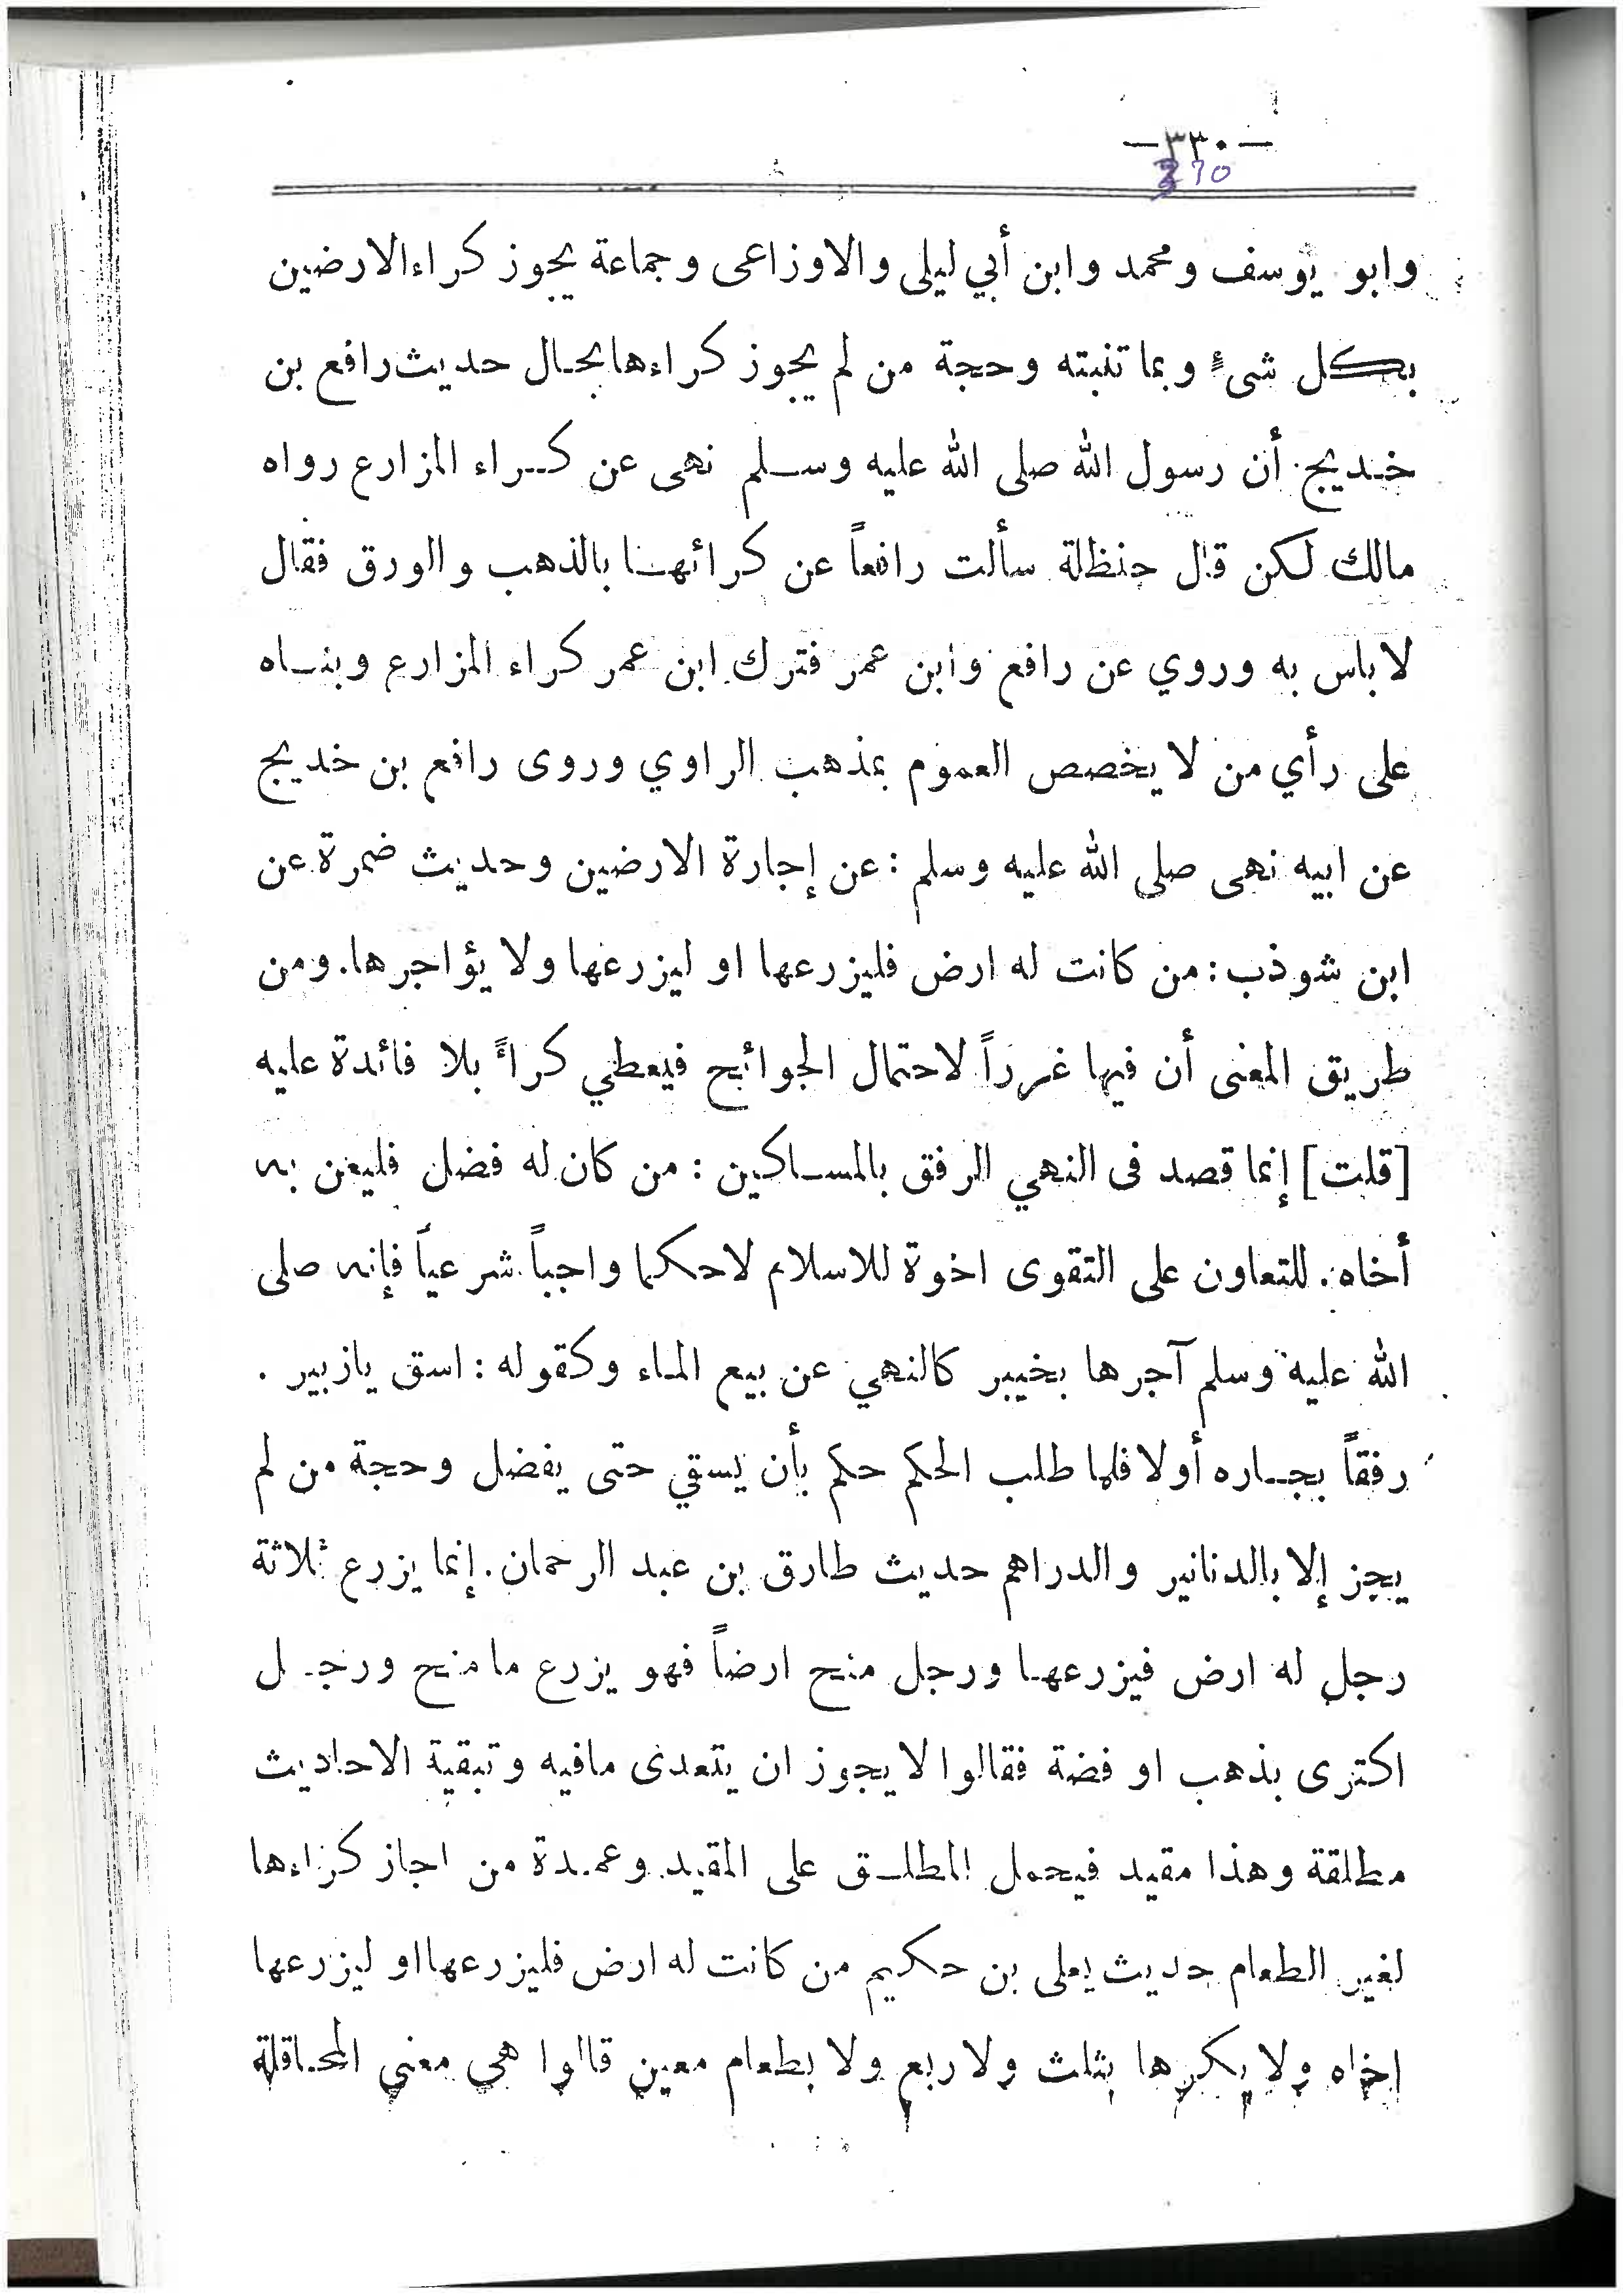 —٣٣٠—
370
وابو يوسف ومحمد وابن أبي ليلى والاوزاعى وجماعة يجوز كراءالارضين
بكل شىء وبما تنبته وحجة من لم يجوز كراءها بحال حديث رافع بن
خديج أن رسول الله صلى الله عليه وسلم نهى عن كراء المزارع رواه
مالك لكن قال حنظلة سألت رافعاً عن كرائها بالذهب والورق فقال
لا باس به وروي عن رافع وابن عمر فترك ابن عمر كراء المزارع وبناه
على رأي من لا يخصص العموم بمذهب الراوي وروى رافع بن خديج
عن ابيه نهى صلى الله عليه وسلم : عن إجارة الارضين وحديث ضمرة عن
ابن شوذب : من كانت له ارض فليزرعها او ليزرعها ولا يؤاجرها. ومن
طريق المعنى أن فيها غرراً لاحتمال الجوائح فيعطي كراءً بلا فائدة عليه
[قلت] إنما قصد فى النهي الرفق بالمساكين : من كان له فضل فليعن به
أخاه. للتعاون على التقوى اخوة للاسلام لاحكما واجباً شرعياً فإنه صلى
الله عليه وسلم آجرها بخيبر كالنهي عن بيع الماء وكقوله : اسق يازبير .
رفقاً بجاره أولا فلما طلب الحكم حكم بأن يسقي حتى يفضل وحجة من لم
يجز إلا بالدنانير والدراهم حديث طارق بن عبد الرحمان. إنما يزرع ثلاثة
رجل له ارض فيزرعها ورجل منح ارضاً فهو يزرع ما منح ورجل
اكترى بذهب او فضة فقالوا لا يجوز ان يتعدى مافيه وتبقية الاحاديث
مطلقة وهذا مقيد فيحمل المطلق على المقيد وعمدة من اجاز كراءها
لغير الطعام حديث يعلى بن حكيم من كانت له ارض فليزرعها او ليزرعها
اخاه ولا يكرها بثلث ولا ربع ولا بطعام معين قالوا هي معنى المحاقلة